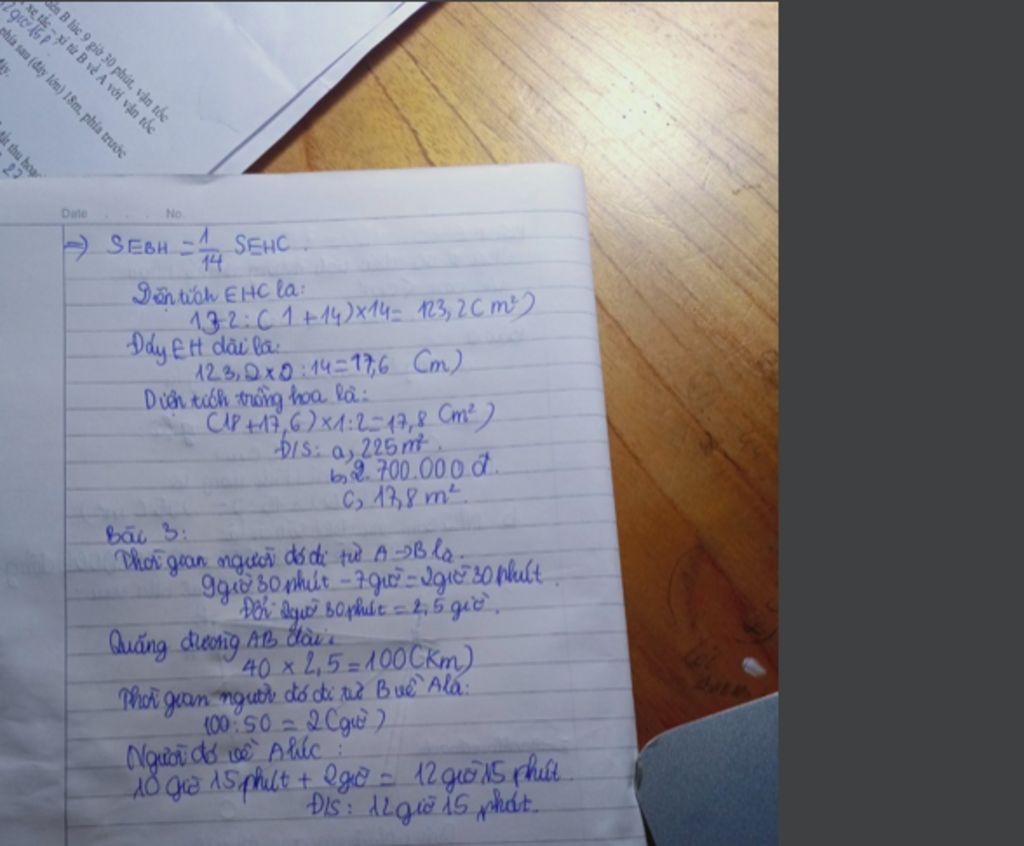 đến B lúc 9 giờ 30 phút, vận tốc
xe tắc - xi từ B về A với vận tốc
12 giờ 15 p
phía sau (đáy lớn) 18m, phía trước
đất thu hoạ
Date . . . No.
=> SEBH = 1/14 SEHC.
Diện tích EHC là:
132 : (1 + 14) x 14 = 123,2 (m²)
Đáy EH dài là:
123,2 x 2 : 14 = 17,6 (m)
Diện tích trồng hoa là:
(18 + 17,6) x 1 : 2 = 17,8 (m²)
Đ/S: a, 225 m².
b, 2.700.000 đ.
c, 17,8 m².
Bài 3:
Thời gian người đó đi từ A -> B là.
9 giờ 30 phút - 7 giờ = 2 giờ 30 phút.
Đổi 2 giờ 30 phút = 2,5 giờ.
Quãng đương AB dài:
40 x 2,5 = 100 (Km)
Thời gian người đó đi từ B về A là:
100 : 50 = 2 (giờ)
Người đó về A lúc:
10 giờ 15 phút + 2 giờ = 12 giờ 15 phút.
Đ/S: 12 giờ 15 phút.